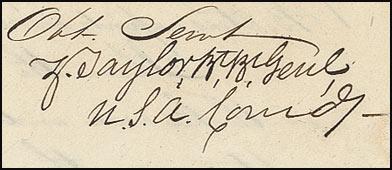 Obt. Servt
Z. Taylor, Bt. Br. Genl,
U.S.A. Comdg